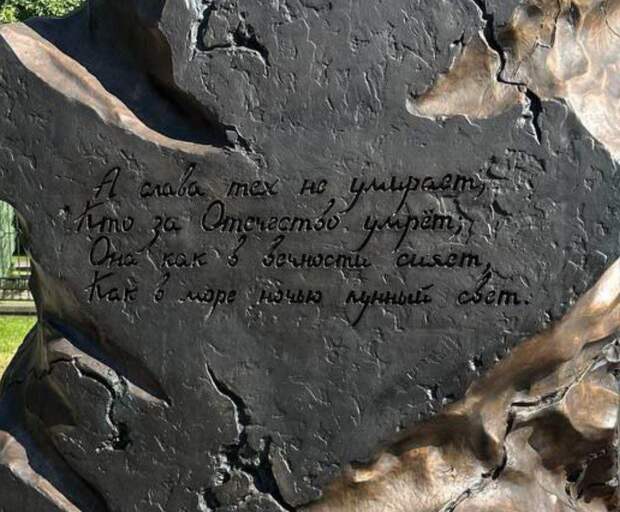 А слава тех не умирает,
Кто за Отечество умрёт;
Она как в вечности сияет,
Как в море ночью лунный свет.